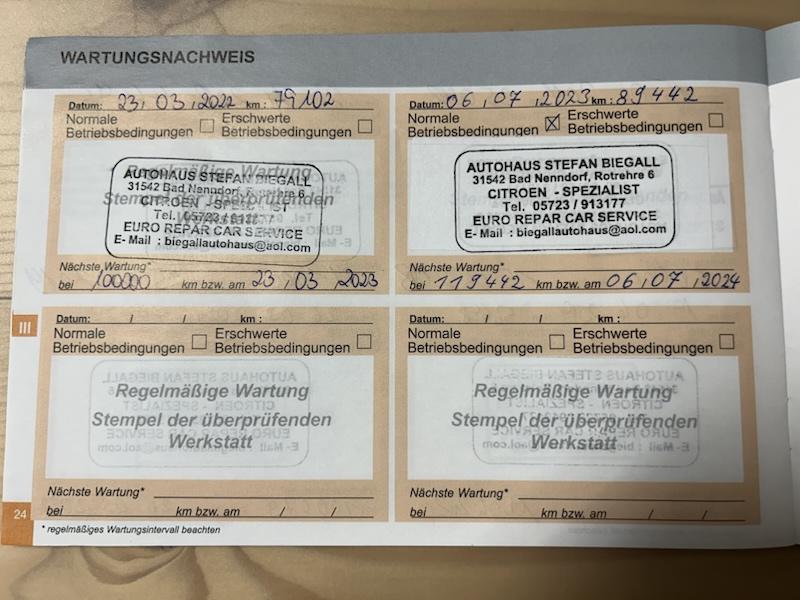 WARTUNGSNACHWEIS
Datum: 23, 03, 2022 km: 79102
Normale Betriebsbedingungen Erschwerte Betriebsbedingungen
Regelmäßige Wartung
Stempel der überprüfenden
Werkstatt
AUTOHAUS STEFAN BIEGALL
31542 Bad Nenndorf, Rotrehre 6
CITROEN - SPEZIALIST
Tel. 05723 / 913177
EURO REPAR CAR SERVICE
E-Mail : biegallautohaus@aol.com
Nächste Wartung*
bei 100000 km bzw. am 23, 03, 2023
Datum: 06, 07, 2023 km: 89442
Normale Betriebsbedingungen ☒ Erschwerte Betriebsbedingungen
AUTOHAUS STEFAN BIEGALL
31542 Bad Nenndorf, Rotrehre 6
CITROEN - SPEZIALIST
Tel. 05723 / 913177
EURO REPAR CAR SERVICE
E- Mail : biegallautohaus@aol.com
Nächste Wartung*
bei 119442 km bzw. am 06, 07, 2024
III
Datum: / / km :
Normale Betriebsbedingungen Erschwerte Betriebsbedingungen
Regelmäßige Wartung
Stempel der überprüfenden
Werkstatt
Nächste Wartung*
bei km bzw. am / /
Datum: / / km :
Normale Betriebsbedingungen Erschwerte Betriebsbedingungen
Regelmäßige Wartung
Stempel der überprüfenden
Werkstatt
Nächste Wartung*
bei km bzw. am / /
24
* regelmäßiges Wartungsintervall beachten